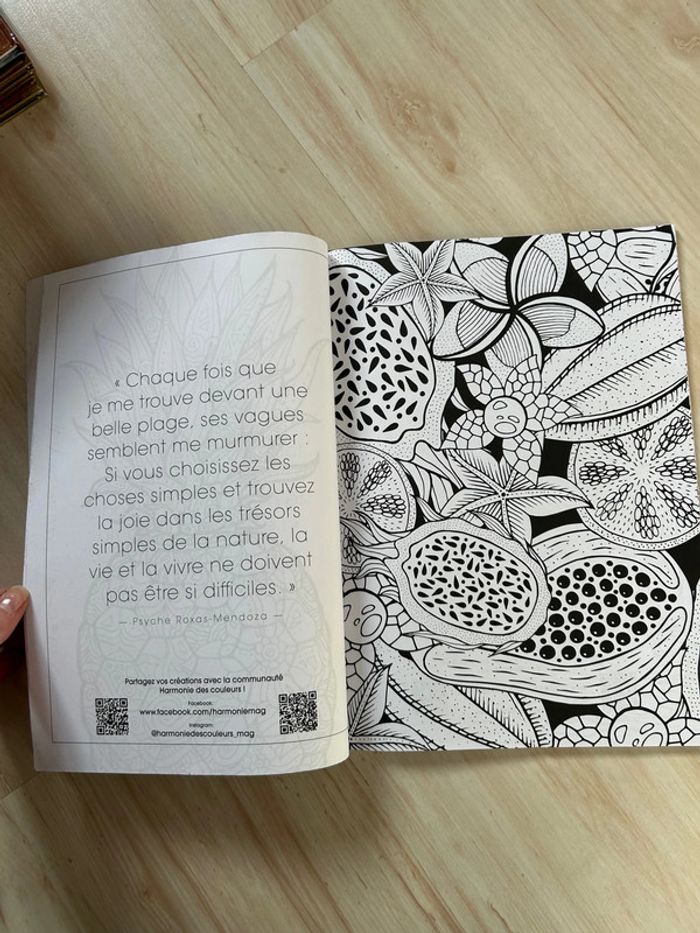 « Chaque fois que
je me trouve devant une
belle plage, ses vagues
semblent me murmurer :
Si vous choisissez les
choses simples et trouvez
la joie dans les trésors
simples de la nature, la
vie et la vivre ne doivent
pas être si difficiles. »
— Psyche Roxas-Mendoza —
Partagez vos créations avec la communauté
Harmonie des couleurs !
Facebook:
www.facebook.com/harmoniemag
Instagram:
@harmoniedescouleurs_mag